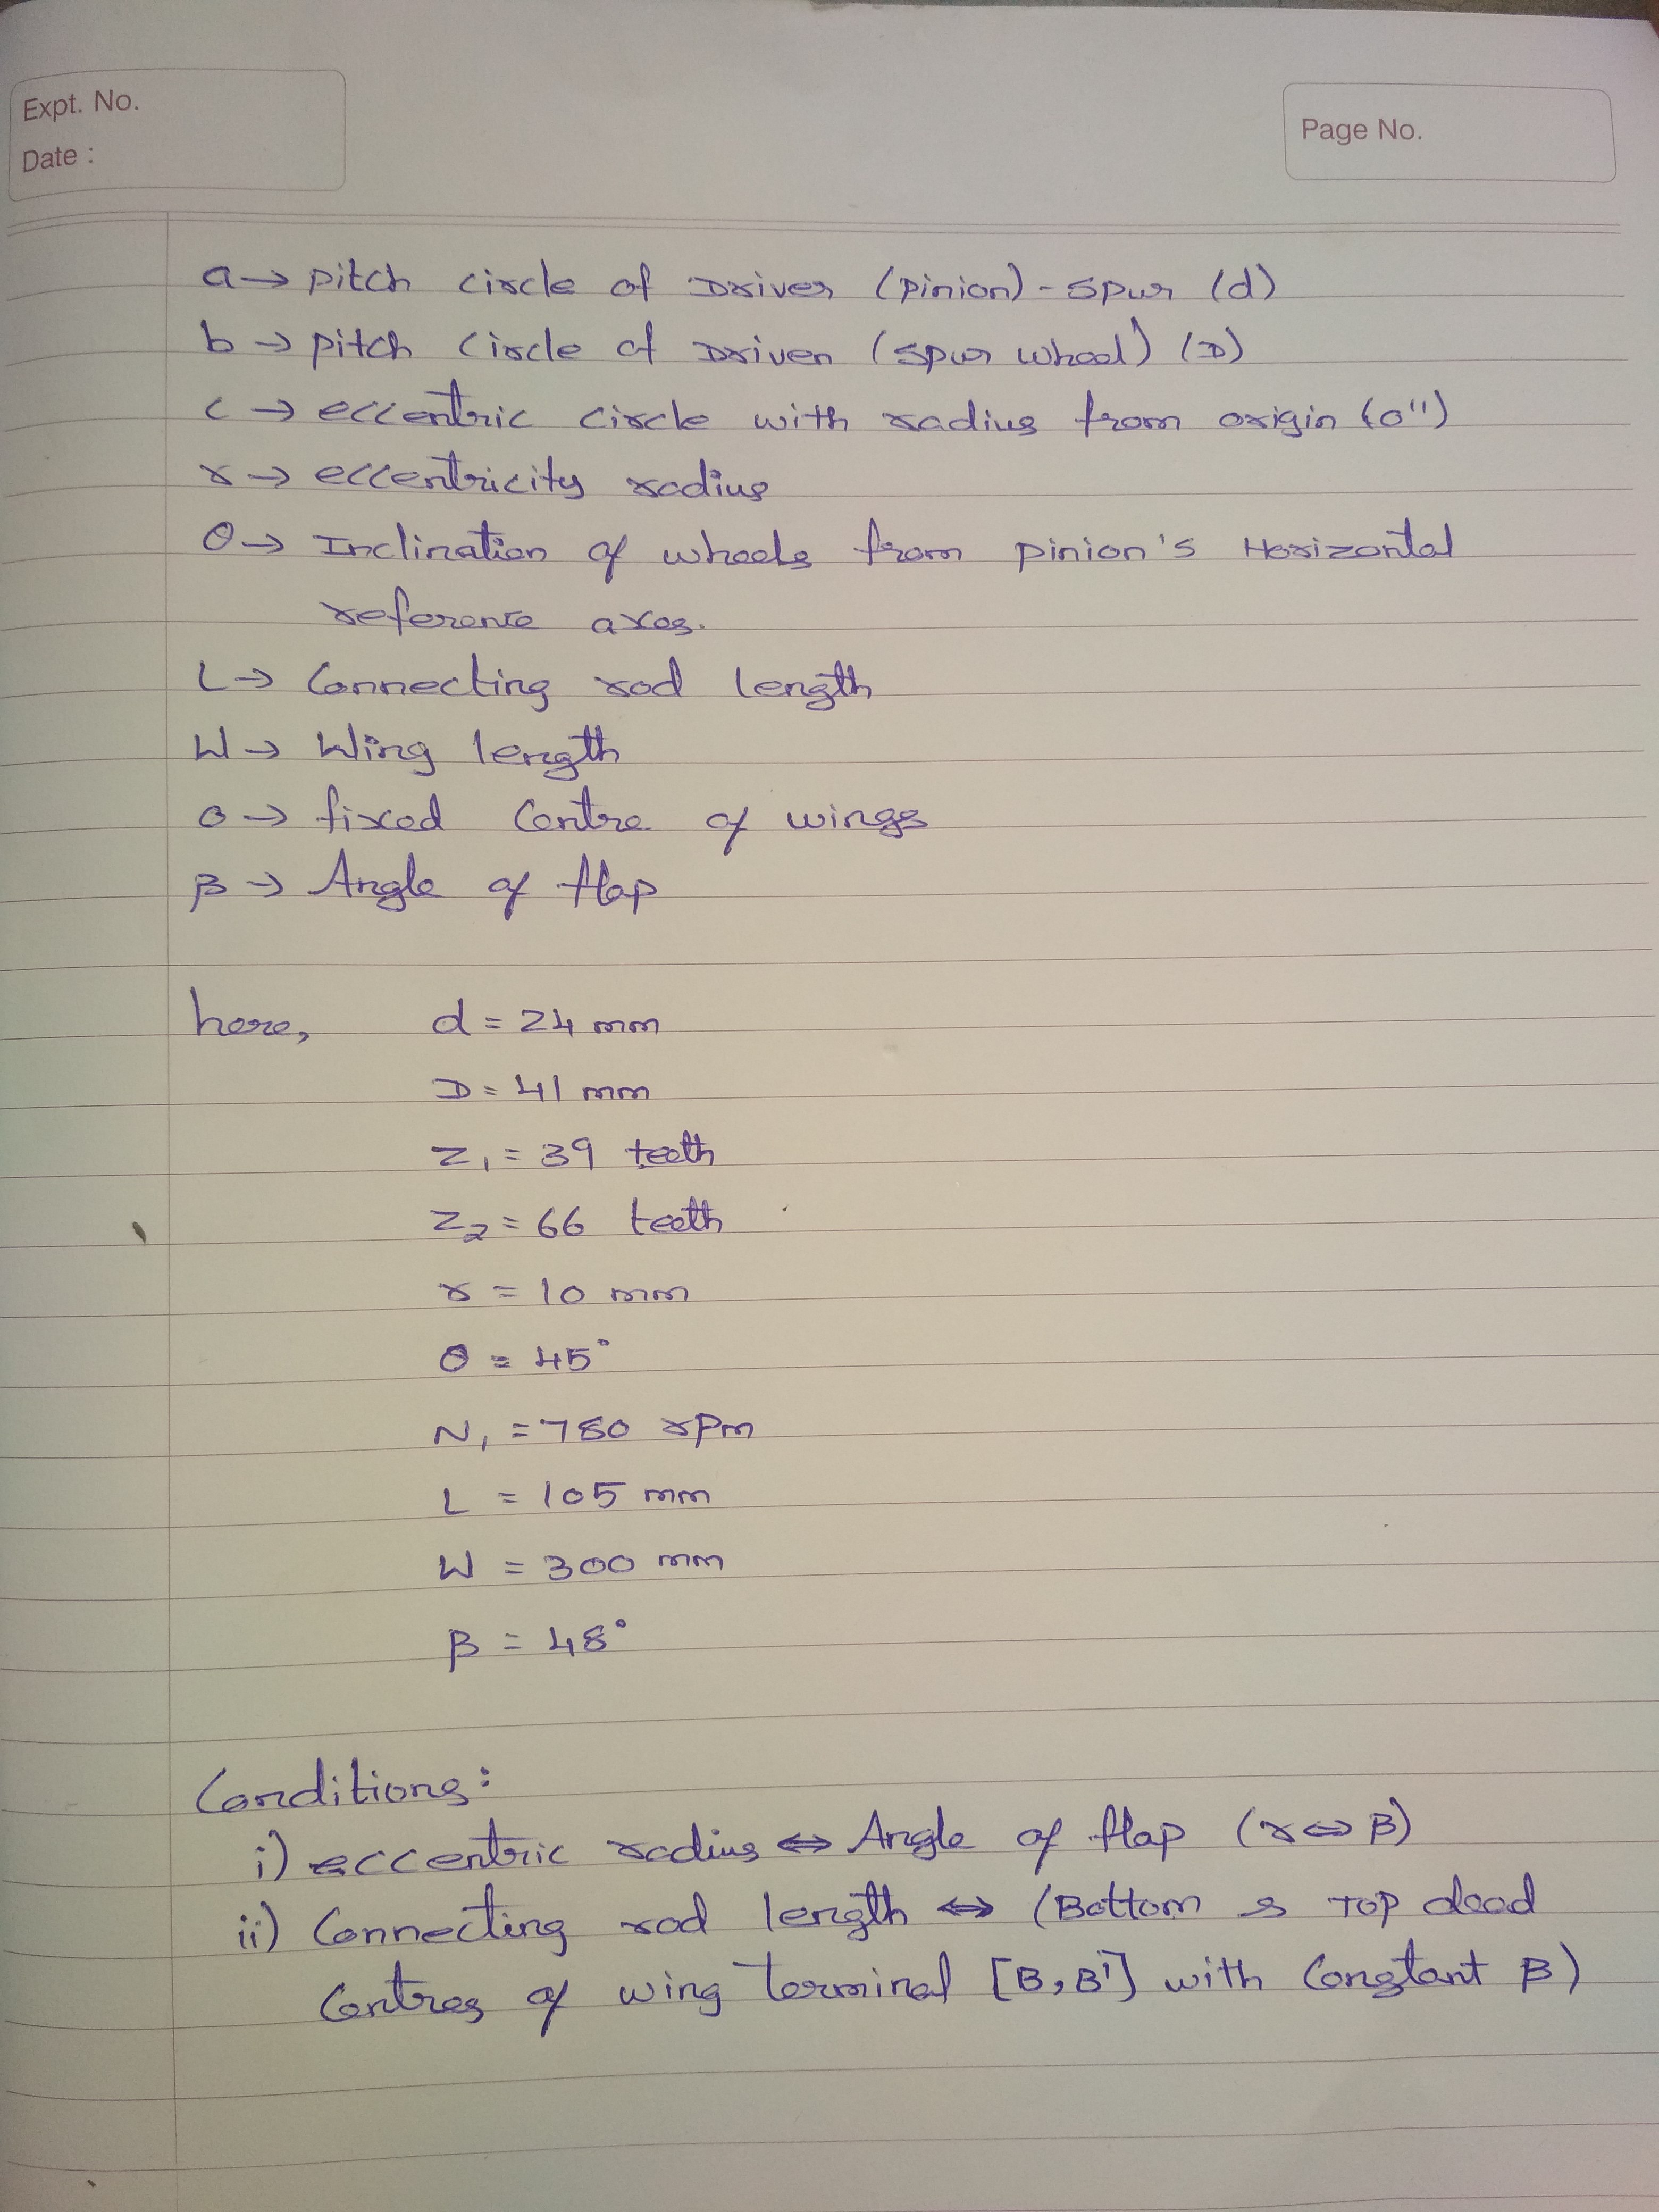 Expt. No.
Date :
Page No.
a → pitch circle of Driver (pinion) - spur (d)
b → pitch circle of Driven (spur wheel) (D)
c → eccentric circle with radius from origin (o")
r → eccentricity radius
θ → Inclination of wheels from pinion's Horizontal
reference axes.
L → Connecting rod length
W → Wing length
o → fixed Centre of wings
β → Angle of flap
here, d = 24 mm
D = 41 mm
Z₁ = 39 teeth
Z₂ = 66 teeth
r = 10 mm
θ = 45°
N₁ = 780 rpm
L = 105 mm
W = 300 mm
β = 48°
Conditions:
i) eccentric radius ⇔ Angle of flap (r ⇔ β)
ii) Connecting rod length ⇔ (Bottom & Top dead
Centres of wing terminal [B, B'] with Constant β)